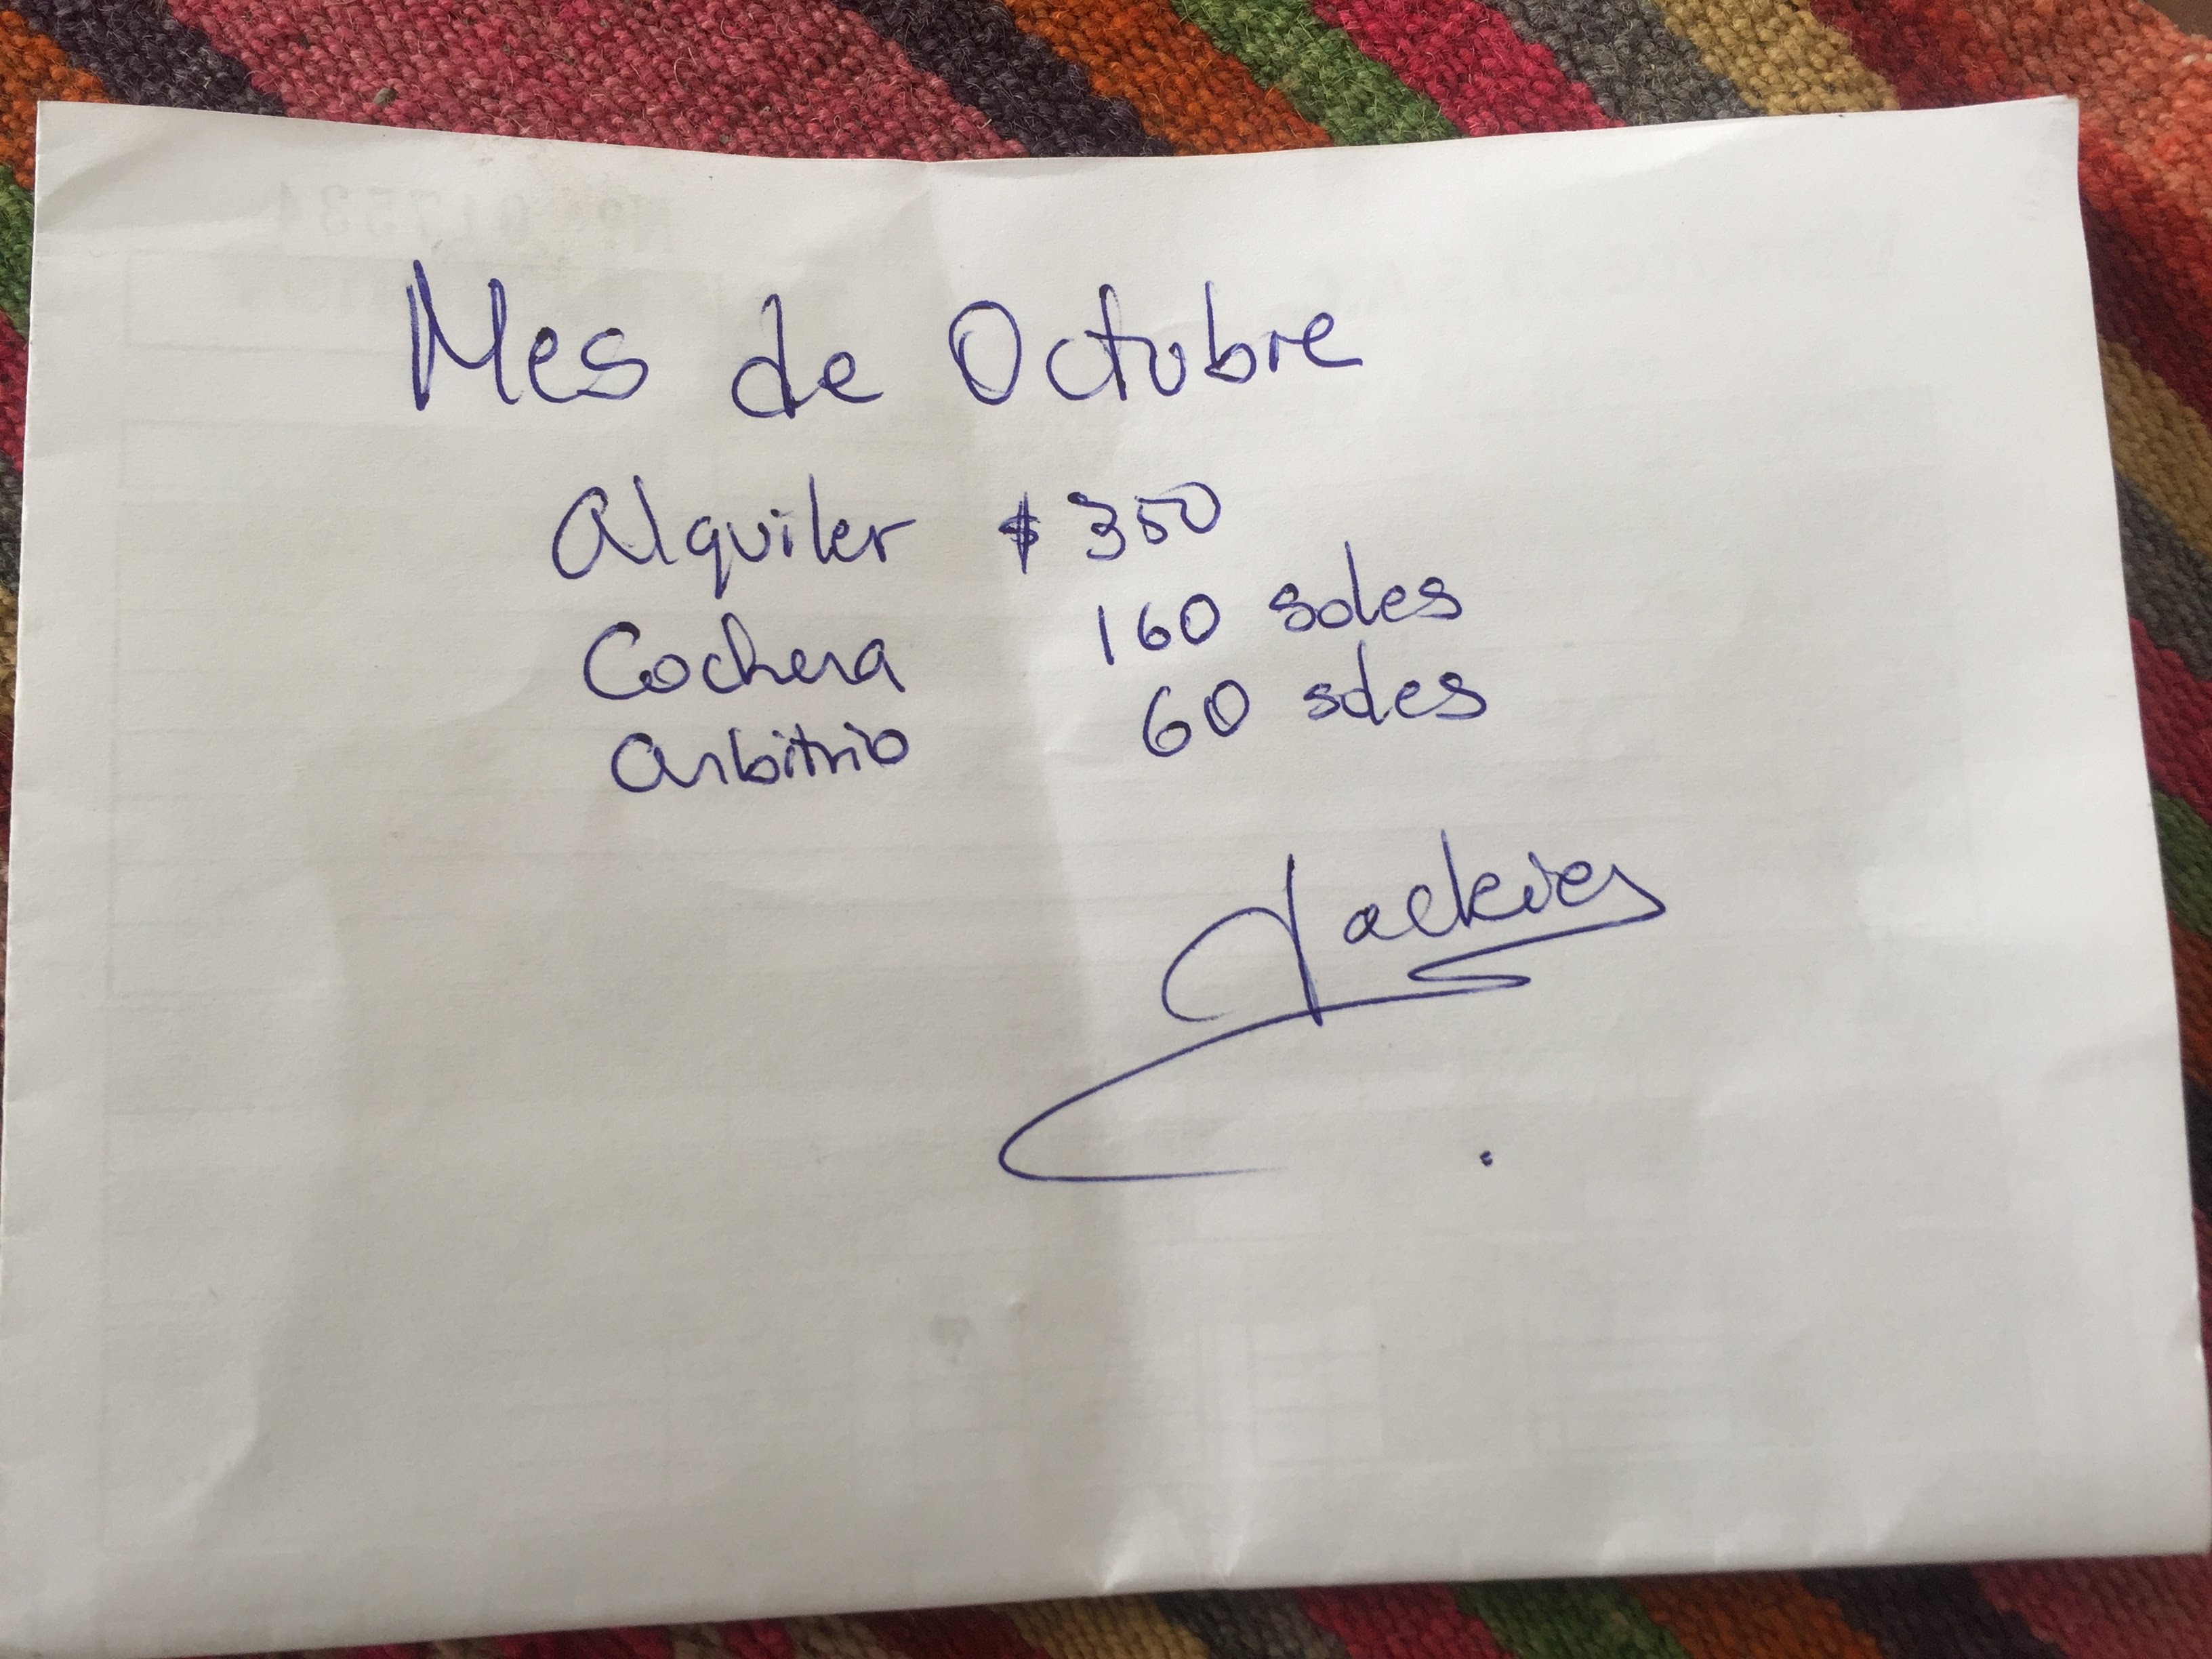 Mes de Octubre
Alquiler $ 350
Cochera 160 soles
Arbitrio 60 soles